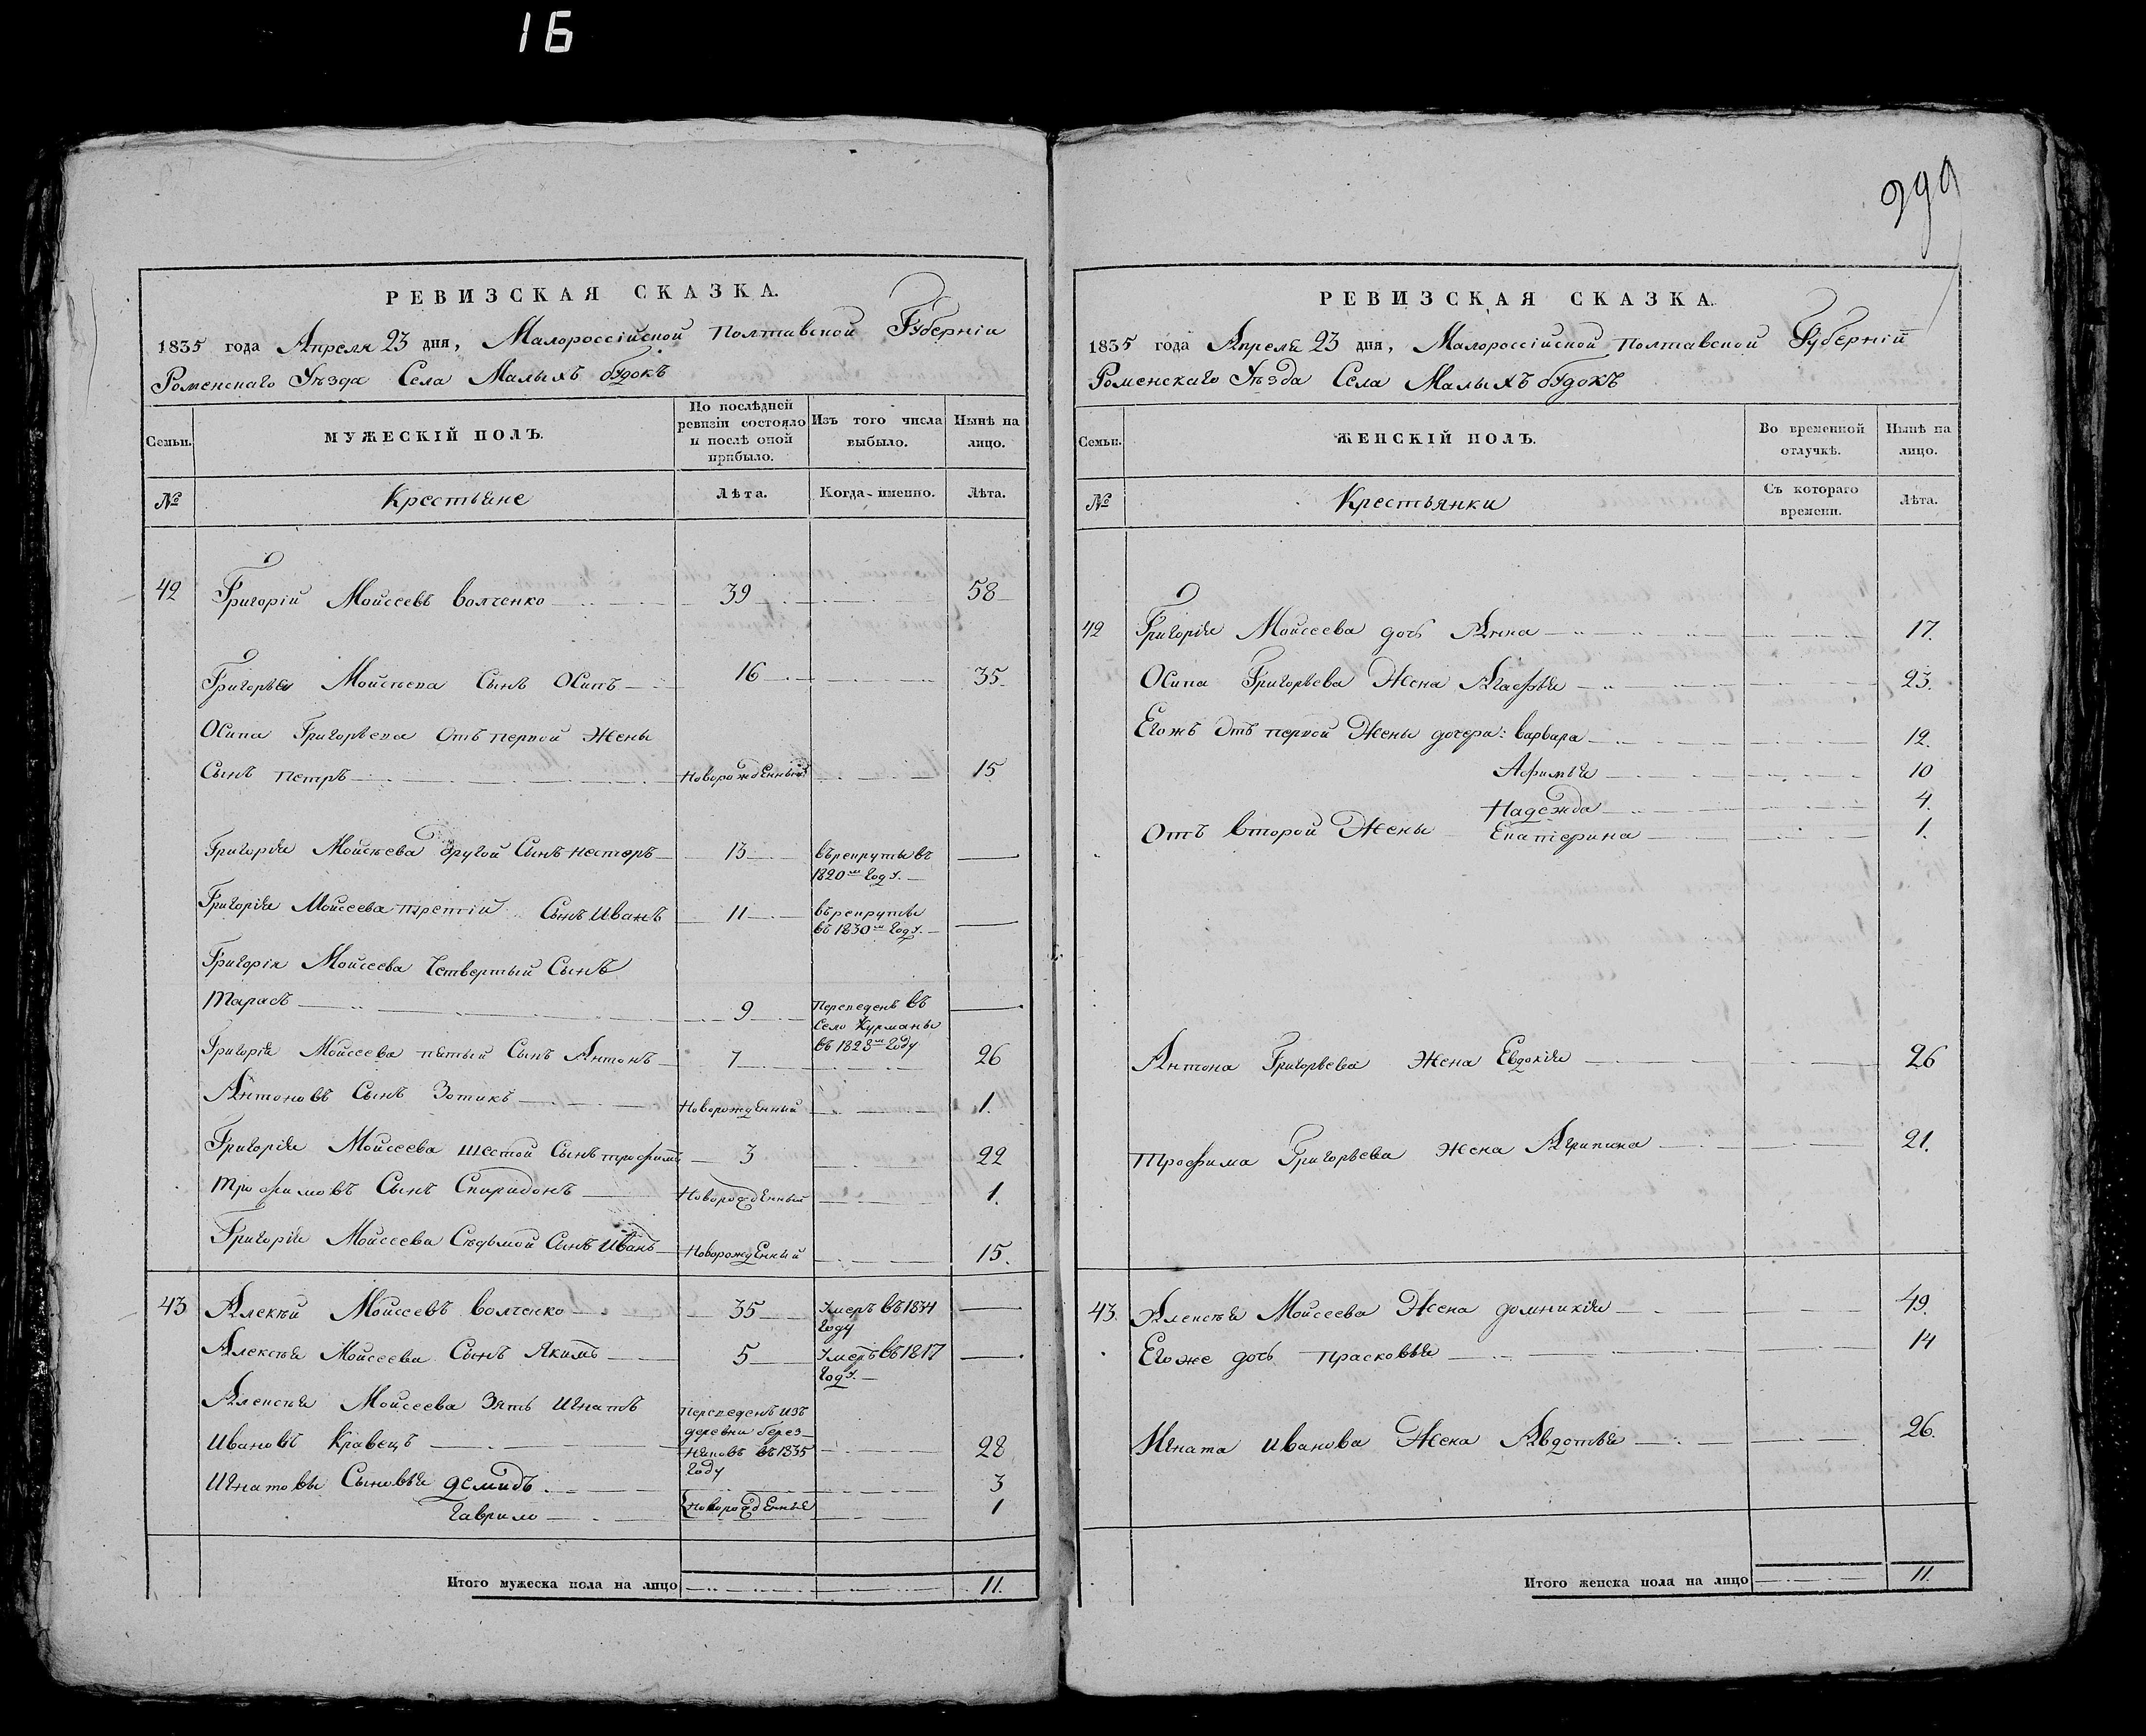 16
299
РЕВИЗСКАЯ СКАЗКА.
1835 года Апреля 23 дня, Малороссійской Полтавской Губерніи
Роменскаго Уѣзда Села Малыхъ будокъ
Семьи.
МУЖЕСКІЙ ПОЛЪ.
По послѣдней ревизіи состояло и послѣ оной прибыло.
Изъ того числа выбыло.
Нынѣ на лицо.
№
Крестьяне
Лѣта.
Когда именно.
Лѣта.
42 Григорій Моисеевъ Волченко 39 58
Григорья Моисѣева Сынъ Осипъ 16 35
Осипа Григорьева Отъ первой Жены
Сынъ Петръ Новорожденный 15
Григорія Моисѣева другой Сынъ Несторъ 13 въ рекруты въ
1820м Году.
Григорія Моисеева третій Сынъ Иванъ 11 въ рекруты
въ 1830м Году.
Григорія Моисеева Четвертый Сынъ
Тарасъ 9 Переведенъ въ
Село Курманы
въ 1828м Году
Григорія Моисеева пятый Сынъ Антонъ 7 26
Антоновъ Сынъ Зотикъ Новорожденный 1.
Григорія Моисеева шестой Сынъ Трофимъ 3 22
Трофимовъ Сынъ Спиридонъ Новорожденный 1.
Григорія Моисеева Седьмой Сынъ Иванъ Новорожденный 15.
43 Алекѣй Моисеевъ Волченко 35 Умеръ въ 1834
Году
Алексѣя Моисеева Сынъ Якимъ 5 Умеръ въ 1817
Году.
Алексѣя Моисеева Зять Игнатъ Переведенъ изъ
деревни берез
Ивановъ Кравецъ няковъ въ 1835 28
Году
Игнатовы Сыновья Демидъ 3
Гаврило Новорожденные 1
Итого мужеска пола на лицо 11.
РЕВИЗСКАЯ СКАЗКА.
1835 года Апреля 23 дня, Малороссійской Полтавской Губерніи
Роменскаго Уѣзда Села Малыхъ будокъ
Семьи.
ЖЕНСКІЙ ПОЛЪ.
Во временной отлучкѣ.
Нынѣ на лицо.
№
Крестьянки
Съ котораго времени.
Лѣта.
42 Григорія Моисеева дочь Анна 17.
Осипа Григорьева Жена Агафья 23.
Егожъ Отъ первой Жены дочери: Варвара 12.
Афимья 10
Надежда 4.
Отъ второй Жены Екатерина 1.
Антона Григорьева Жена Евдокія 26
Трофима Григорьева Жена Агрипина 21.
43. Алексѣя Моисеева Жена Домникія 49.
Егоже дочь Прасковья 14
Игната Иванова Жена Авдотья 26.
Итого женска пола на лицо 11.